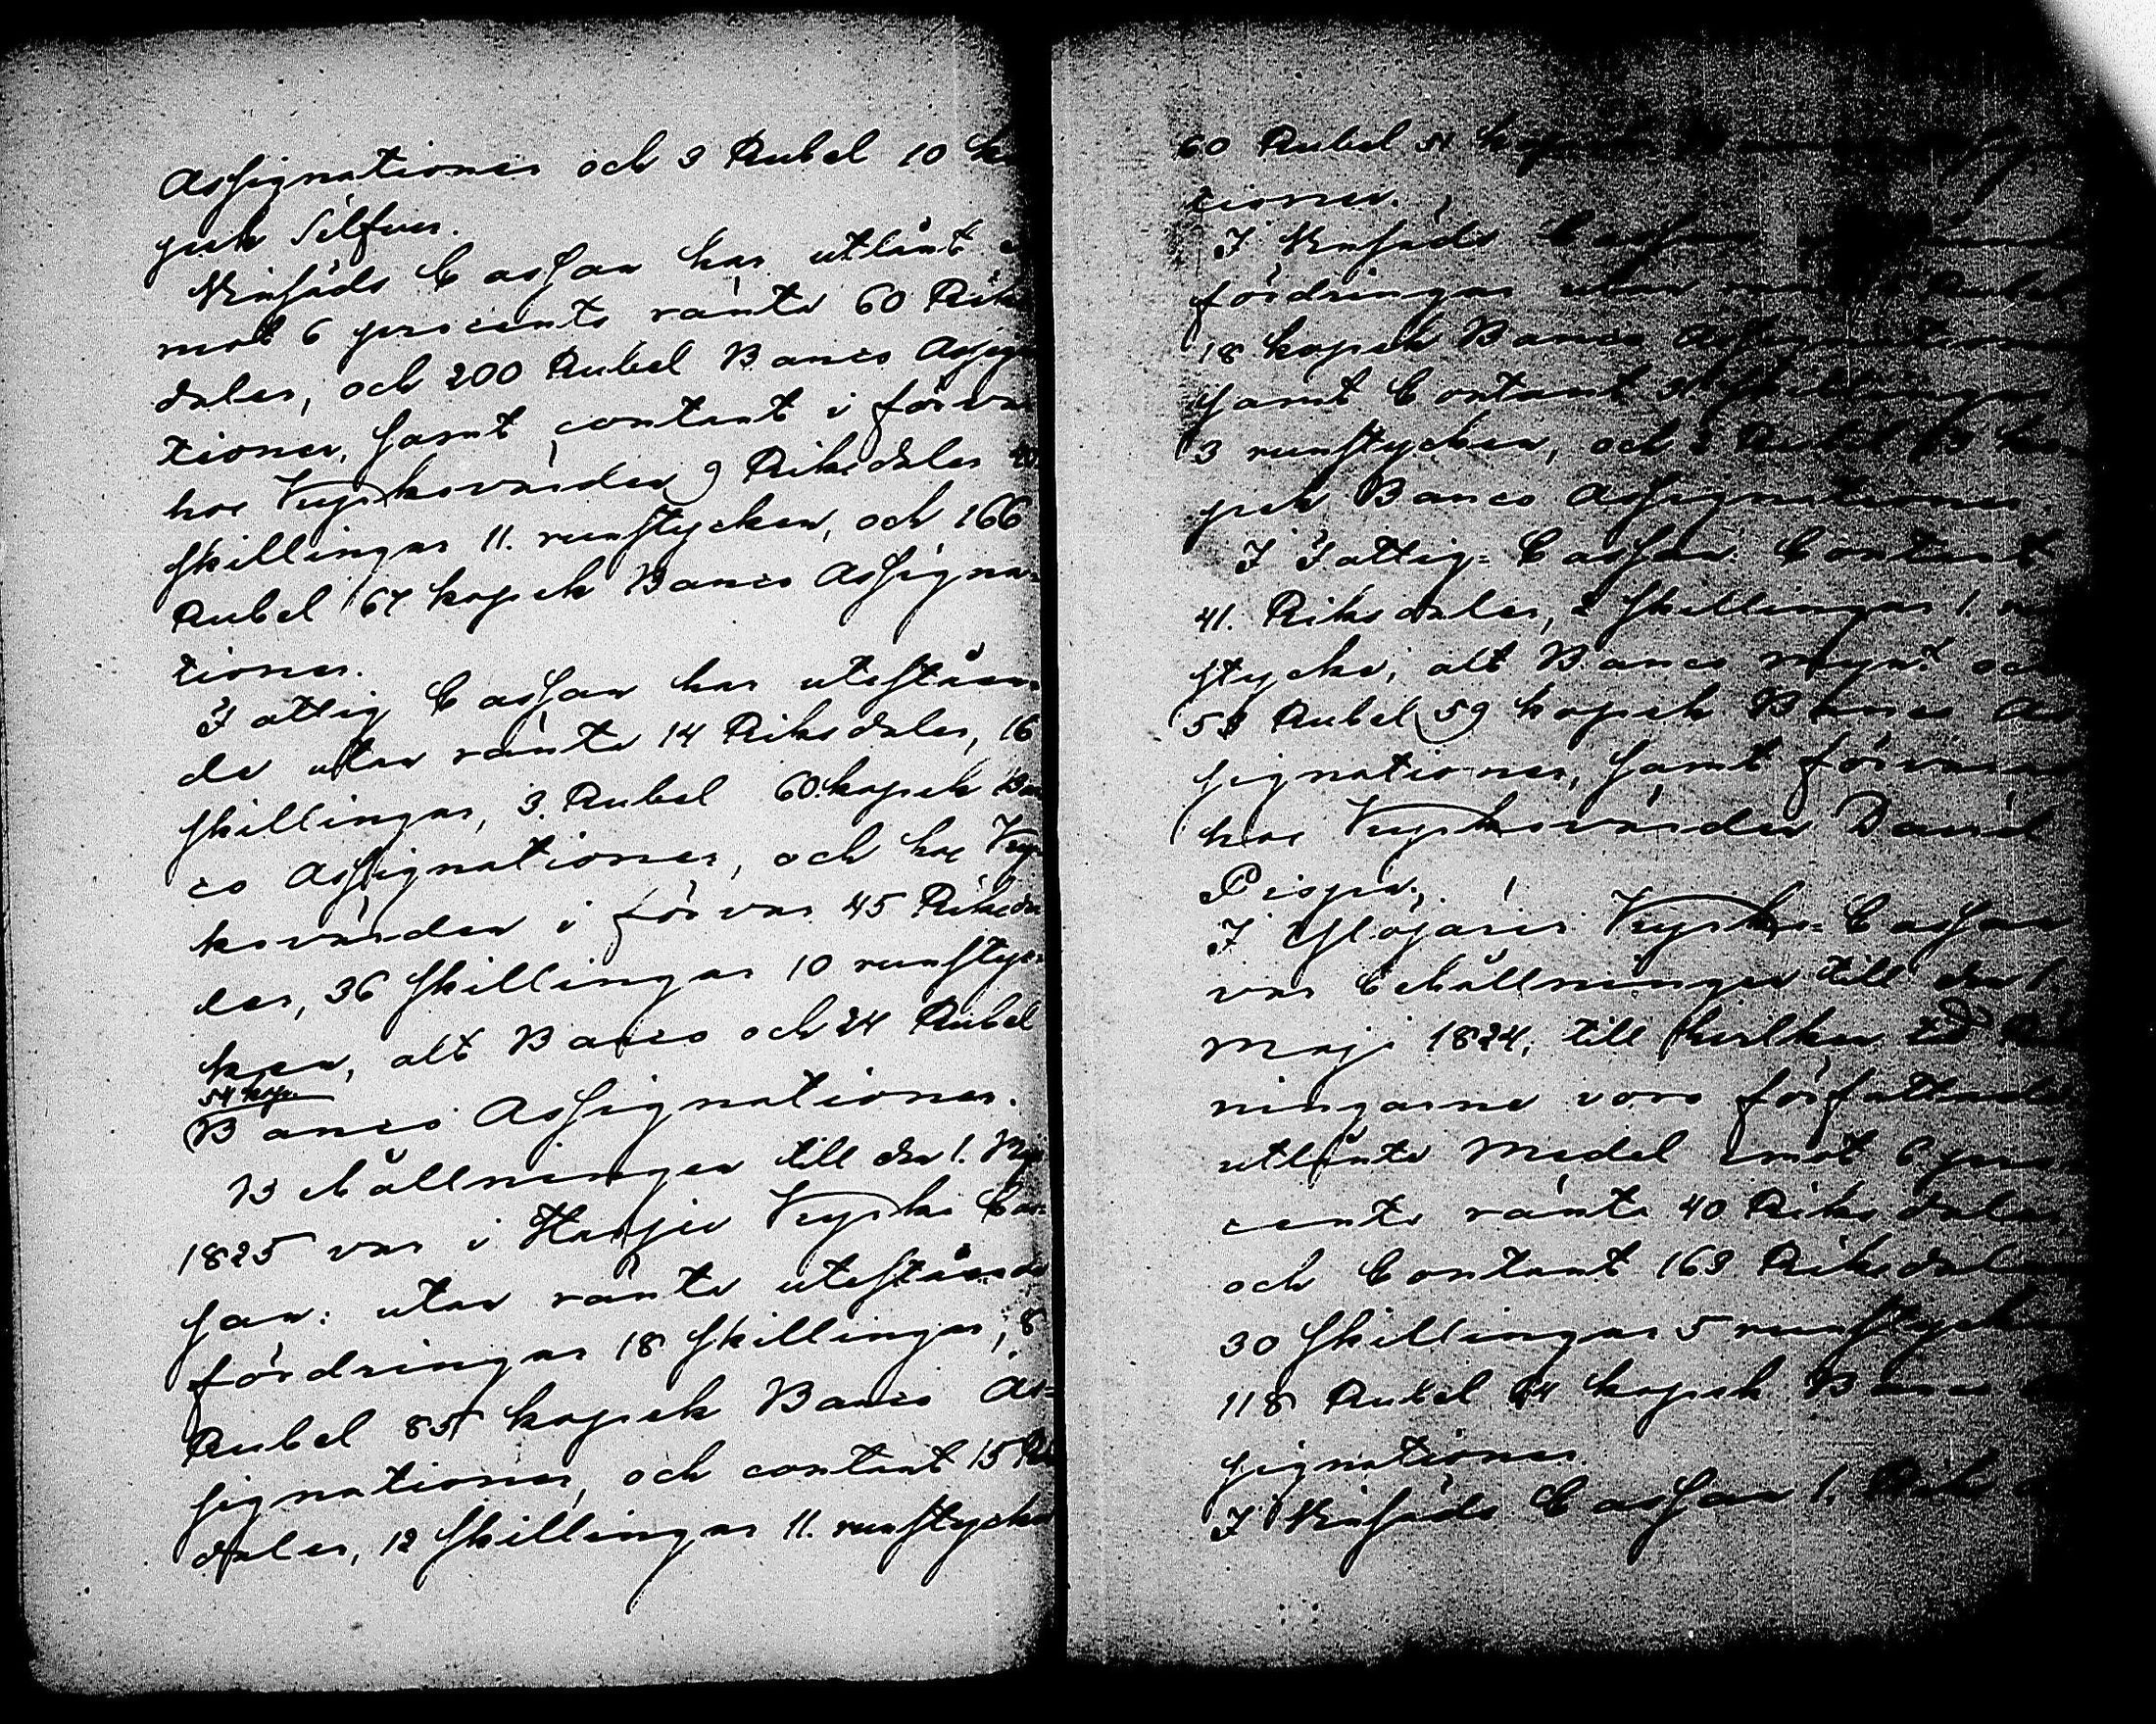 Assignationer och 3 Rubel 10 ko
pek Silfver.
Winfåds Cassan har utlånt
mot 6 procents ränta 60 Riks
daler, och 200 Rubel Banco Assigna
tioner, samt contant i förvar
hos Kyrkovärden 9 Riksdaler
skillingar 11. runstycken, och 166
Rubel 67 kopek Banco Assigna-
tioner.
Fattig Cassan har utestån
de utan ränta 14 Riksdaler, 16
skillingar, 3. Rubel 60 kopek Ban
co Assignationer, och hos Kyr
kovärden i förvar 45 Riksda
ler, 36 skillingar 10 runstyc-
ken, alt Banco och 24 Rubel
54 kop.
Banco Assignationer.
Behållningen till den 1. Maj
1825 var i Harju Kyrko Cas-
san: utan ränta utestående
fördringar 18 skillingar, 8
Rubel 85 kopek Banco As-
signationer, och contant 15 Rik
daler, 12 skillingar 11. runstycken
60 Rubel 51 kopek
tioner.
I Winfåds Cassan
fördringar utan Rubel
18 kopek Banco Assignationer
samt Contant skillingar,
3 runstycken, och 2 Rubel 13 ko
pek Banco Assignationer.
I Fattig-Cassan: Contant
41. Riksdaler, 2 skillingar 1. run
stycke, alt Banco mynt och
Rubel 59 kopek Banco As
signationer, samt förvaras
hos Kyrkovärden David
Pispa.
I Kyrko-Cassan
var Behållningen till den 1.
Maji 1824, till hvilken tid Räk
ningarne voro författade
utlånte Medel emot 6 pro
cents ränta 40 Riksdaler
och Contant 163 Riksdaler
30 skillingar 5 runstycken
118 Rubel kopek Banco As
signationer.
I Winfåds Cassan 1. Riksd